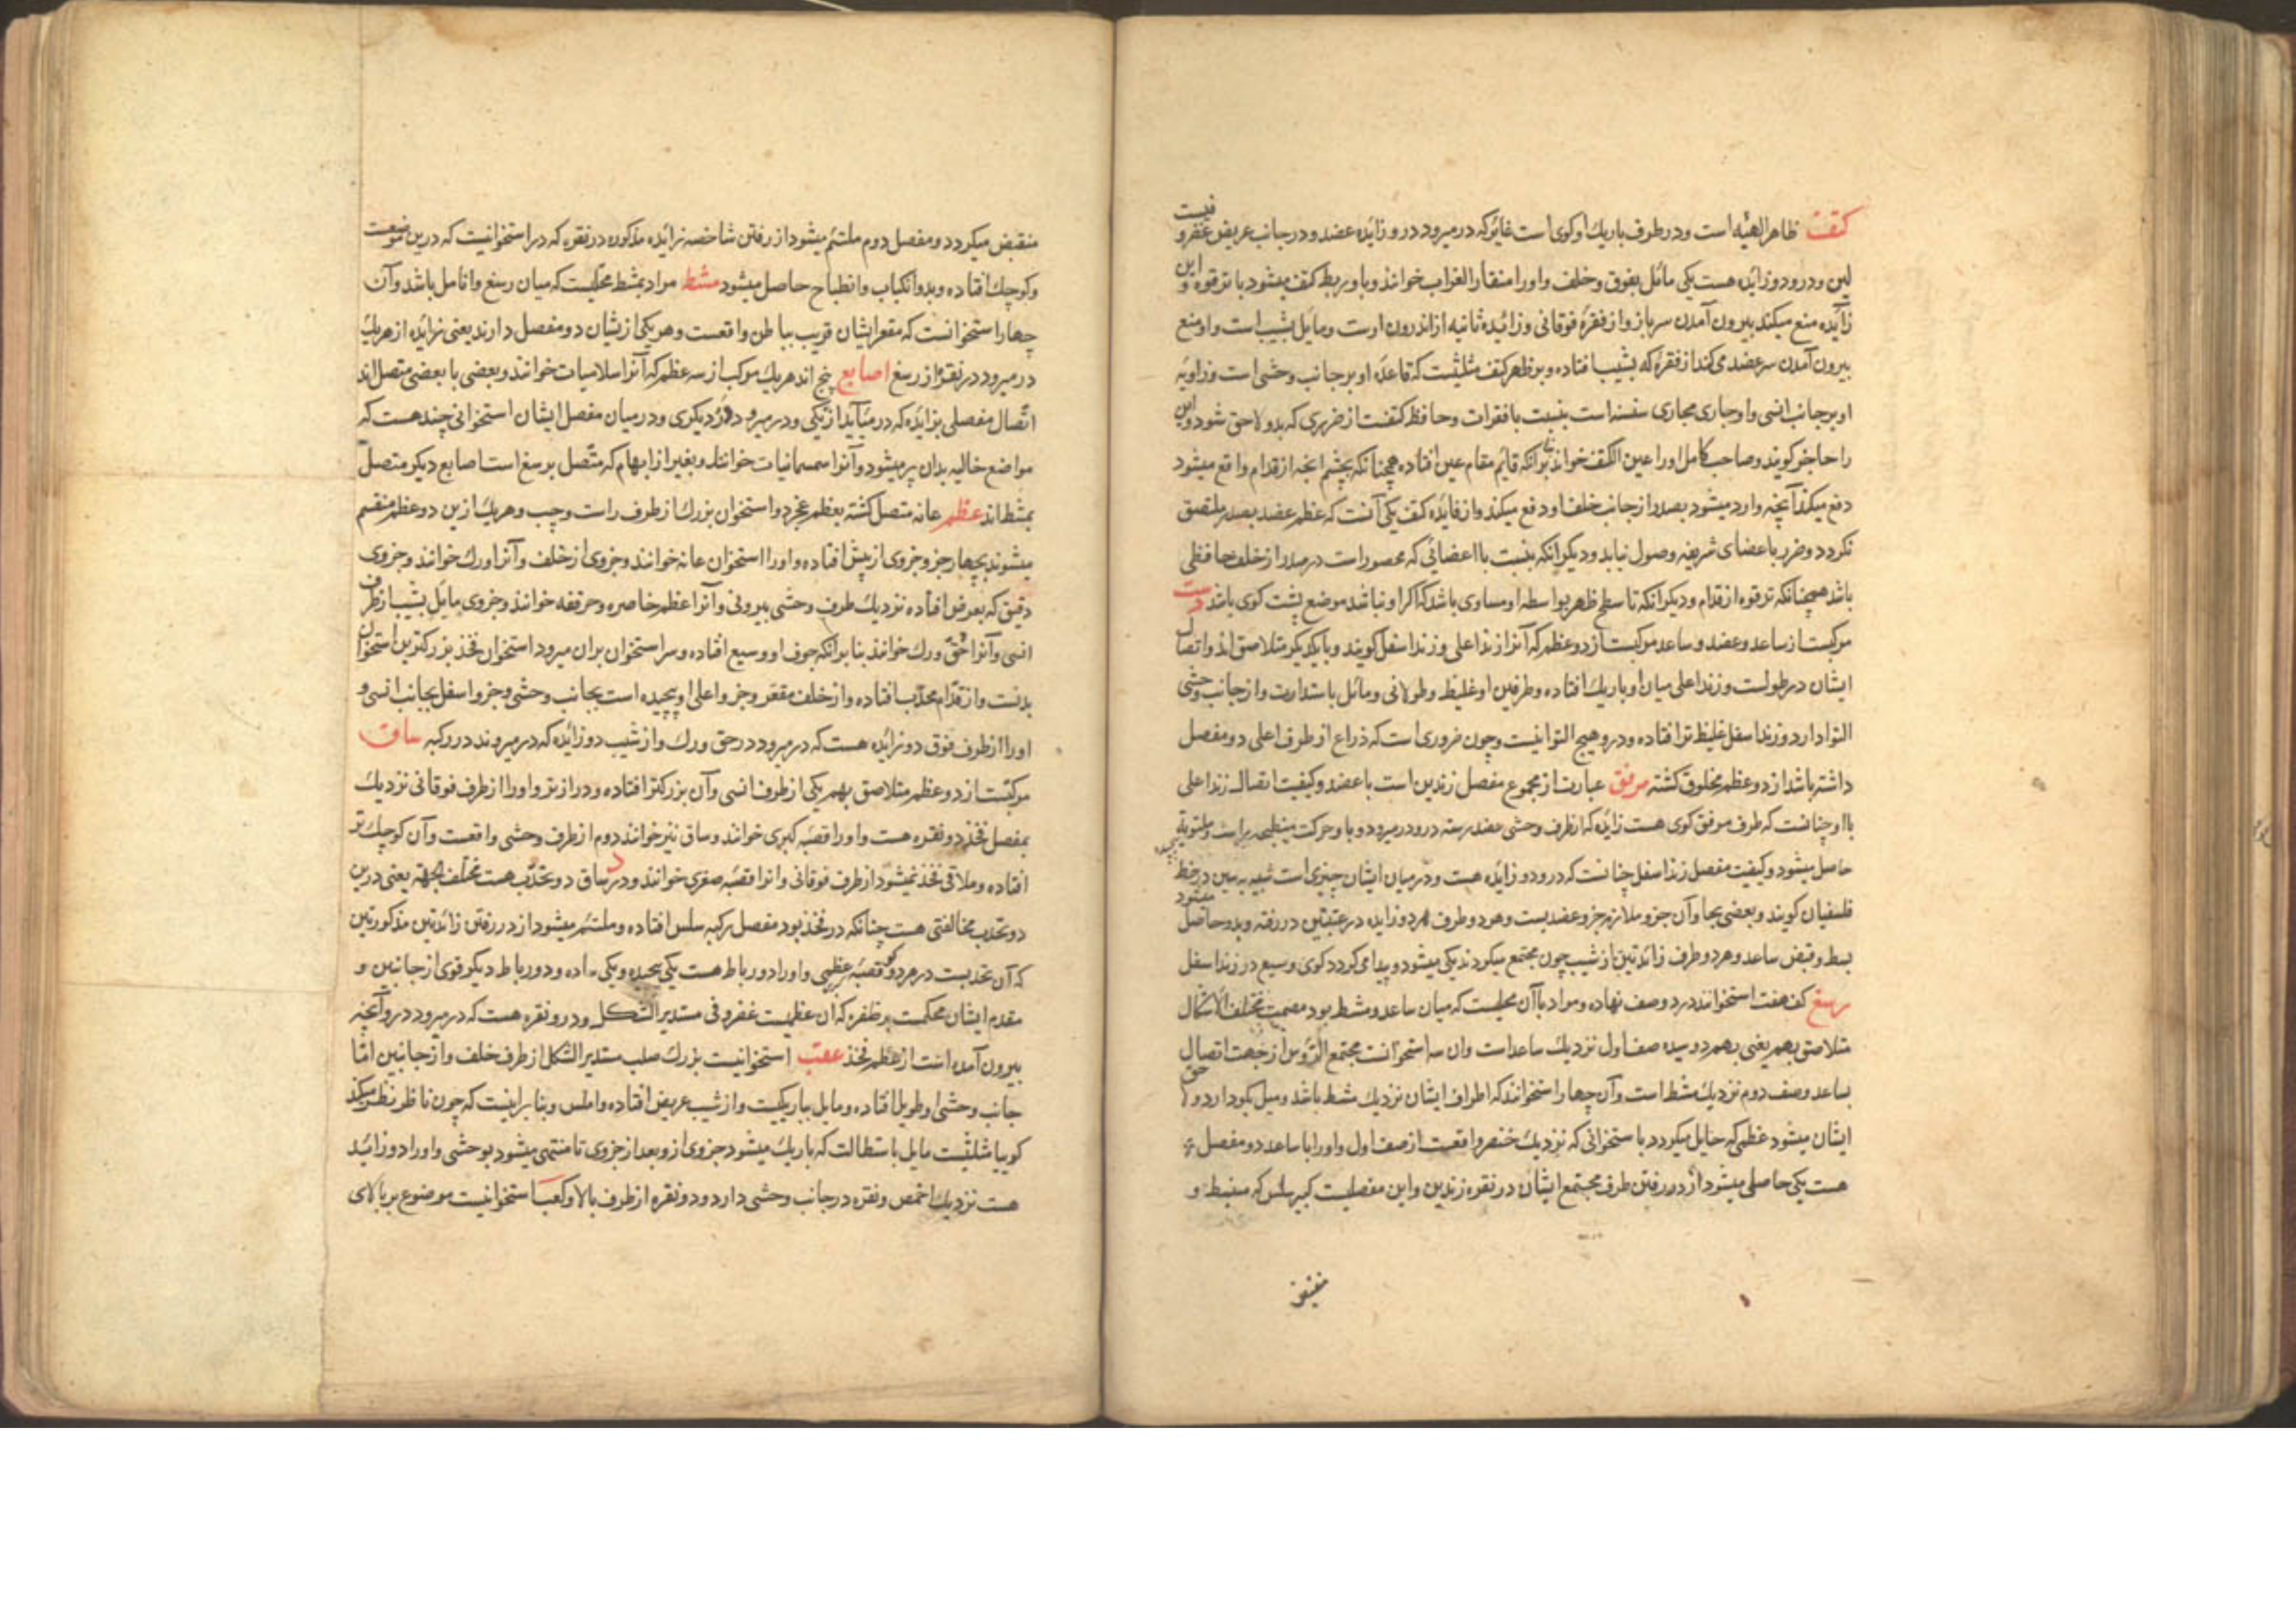 کتف ظاهر الهیئه است و در طرف باریک او کوی است غایر که در میرود درو زایده عضد و در جانب عریض غضروفیست
لین و درو دو زایده هست یکی مائل بفوق و خلف و او را منقار الغراب خوانند و باو ربط کتف میشود با ترقوه و این
زایده منع میکند بیرون آمدن سر بازو از فقرهٔ فوقانی و زائده ثانیه از اندرون اوست و مایل بشیب است و او منع
بیرون آمدن سر عضد می کند از فقرهٔ که بشیب افتاده و بر ظهر کتف مثلثیست که قاعده او بر جانب وحشی است و زاویه
او بر جانب انسی و او جاری مجاری سنسنه است بنسبت با فقرات و حافظ کتفست از ضرری که بدو لاحق شود و این
را حاجز کویند و صاحب کامل او را عین الکتف خواند بنا بر آنکه قائم مقام عین افتاده همچنانکه بچشم آنچه از قدام واقع میشود
دفع میکند آنچه وارد میشود بصدر از جانب خلف او دفع میکند و از فایده کتف یکی آنست که عظم عضد بصدر ملتصق
نکردد و ضرر باعضای شریفه وصول نیابد و دیکر آنکه بنسبت با اعضائی که محصور است در صدر از خلف حافظی
باشد همچنانکه ترقوه از قدام و دیکر آنکه تا سطح ظهر بواسطه او مساوی باشد که اکر او نباشد موضع پشت کوی باشد دست
مرکبست از ساعد و عضد و ساعد مرکبست از دو عظم که آنرا زند اعلی و زند اسفل کویند و با یکدیکر متلاصق اند و اتصال
ایشان در طولست و زند اعلی میان او باریک افتاده و طرفین او غلیظ و طولانی و مائل باستدارت و از جانب وحشی
التوا دارد و زند اسفل غلیظ تر افتاده و درو هیچ التوا نیست و چون ضروری است که ذراع از طرف اعلی دو مفصل
داشته باشد از دو عظم مخلوق کشته مرفق عبارت از مجموع مفصل زندین است با عضد و کیفیت اتصال زند اعلی
با او چنانست که طرف مرفق کوی هست زایده که از طرف وحشی عضد رسته درو در میرود و باو حرکت منبطحه براست و ملتویه
حاصل میشود و کیفیت مفصل زند اسفل چنانست که درو دو زایده هست و در میان ایشان چیزی است شبیه به سین در خط
فلسفیان کویند و بعضی بجا و آن جزو ملازم جزو عضدیست و هر دو طرف هر دو زایده در عتبتین در رفته و بدو حاصل میشود
بسط و قبض ساعد و هر دو طرف زائدتین از شیب چون مجتمع میکردند یکی میشود و پیدا می کردد کوی وسیع در زند اسفل
رسغ کف هفت استخوانند در دو صف نهاده و مراد باآن محلیست که میان ساعد و مشط بود مصمت مختلف الاشکال
متلاصق بهم یعنی بهم دوسیده صف اول نزدیک ساعد است وان سه استخوانست مجتمع الرؤس از جهت اتصال
بساعد و صف دوم نزدیک مشط است و آن چهار استخوانند که اطراف ایشان نزدیک مشط باشد و میل بکود دارد و
ایشان میشود عظمی که حایل میکردد با ستخوانی که نزدیک خنصر واقعست از صف اول و او را با ساعد دو مفصل
هست یکی حاصل میشود از در رفتن طرف مجتمع ایشان در نقره زندین و این مفصلیست کبیر سلس که منبسط و
منقبض
منقبض میکردد و مفصل دوم ملتئم میشود از رفتن شاخصه زائده مذکوره در نقره که در استخوانیست که درین موضعست
و کوچک افتاده و بدو انکباب و انطباح حاصل میشود مشط مراد بمشط محلیست که میان رسغ و انامل باشد و آن
چهار استخوانست که مقعر ایشان قریب بباطن واقعست و هر یکی از یشان دو مفصل دارند یعنی زایده از هر یک
در میرود در نقرهٔ از رسغ اصابع پنج اند هر یک مرکب از سه عظم که آنرا سلامیات خوانند و بعضی با بعضی متصل اند
اتصال مفصلی بزایده که در میآید از یکی و در میرود در دیکری و در میان مفصل ایشان استخوانی چند هست که
مواضع خالیه بدان پر میشود و آنرا سمسمانیات خوانند و بغیر از ابهام که متصل برسغ است اصابع دیکر متصل
بمشط اند عظم عانه متصل کشته بعظم عجز دو استخوان بزرک از طرف راست و چپ و هر یک ازین دو عظم منقسم
میشوند بچهار جزو جزوی از پیش افتاده و او را استخوان عانه خوانند و جزوی از خلف و آنرا ورک خوانند و جزوی
دقیق که بعرض افتاده نزدیک طرف وحشی بیرونی و آنرا عظم خاصره و حرقفه خوانند و جزوی مایل بشیب از طرف
انسی و آنرا حق ورک خوانند بنا بر آنکه جوف او وسیع افتاده و سر استخوان بران میرود استخوان فخذ بزرکترین استخوان
بدنست و از قدام محدب افتاده و از خلف مقعر و جزو اعلی او پیچیده است بجانب وحشی و جزو اسفل بجانب انسی و
او را از طرف فوق دو زایده هست که در میرود در حق ورک و از شیب دو زائده که در میروند در رکبه ساق
مرکبست از دو عظم متلاصق بهم یکی از طرف انسی و آن بزرکتر افتاده و دراز تر و او را از طرف فوقانی نزدیک
بمفصل فخذ دو نقره هست و او را قصبه کبری خوانند و ساق نیز خوانند دوم از طرف وحشی واقعست و آن کوچک تر
افتاده و ملاقی فخذ نمیشود از طرف فوقانی و انرا قصبه صغری خوانند و در ساق دو تحدب هست مختلف الجهة یعنی درین
دو تحدب مخالفتی هست چنانکه در فخذ بود مفصل رکبه سلس افتاده و ملتئم میشود از در رفتن زائدتین مذکورتین
که آن تحدبست در هر دو قصبه عظمی و او را دو رباط هست یکی پیچیده و یکی ساده و دو رباط دیکر قوی از جانبین و
مقدم ایشان محکمست بر ظفره که ان عظمیست غضروفی مستدیر الشکل و درو نقره هست که در میرود درو آنچه
بیرون آمده است از عظم فخذ عقب استخوانیست بزرک صلب مستدیر الشکل از طرف خلف و از جانبین اما
جانب وحشی او طویل افتاده و مایل بباریکیست و از شیب عریض افتاده و املس و بنا بر اینست که چون ناظر نظر میکند
کوییا مثلثیست مایل باستطالت که باریک میشود جزوی از و بعد از جزوی تا منتهی میشود بوحشی و او را دو زائد
هست نزدیک اخمص و نقره در جانب وحشی دارد و دو نقره از طرف بالا و کعب استخوانیست موضوع بر بالای